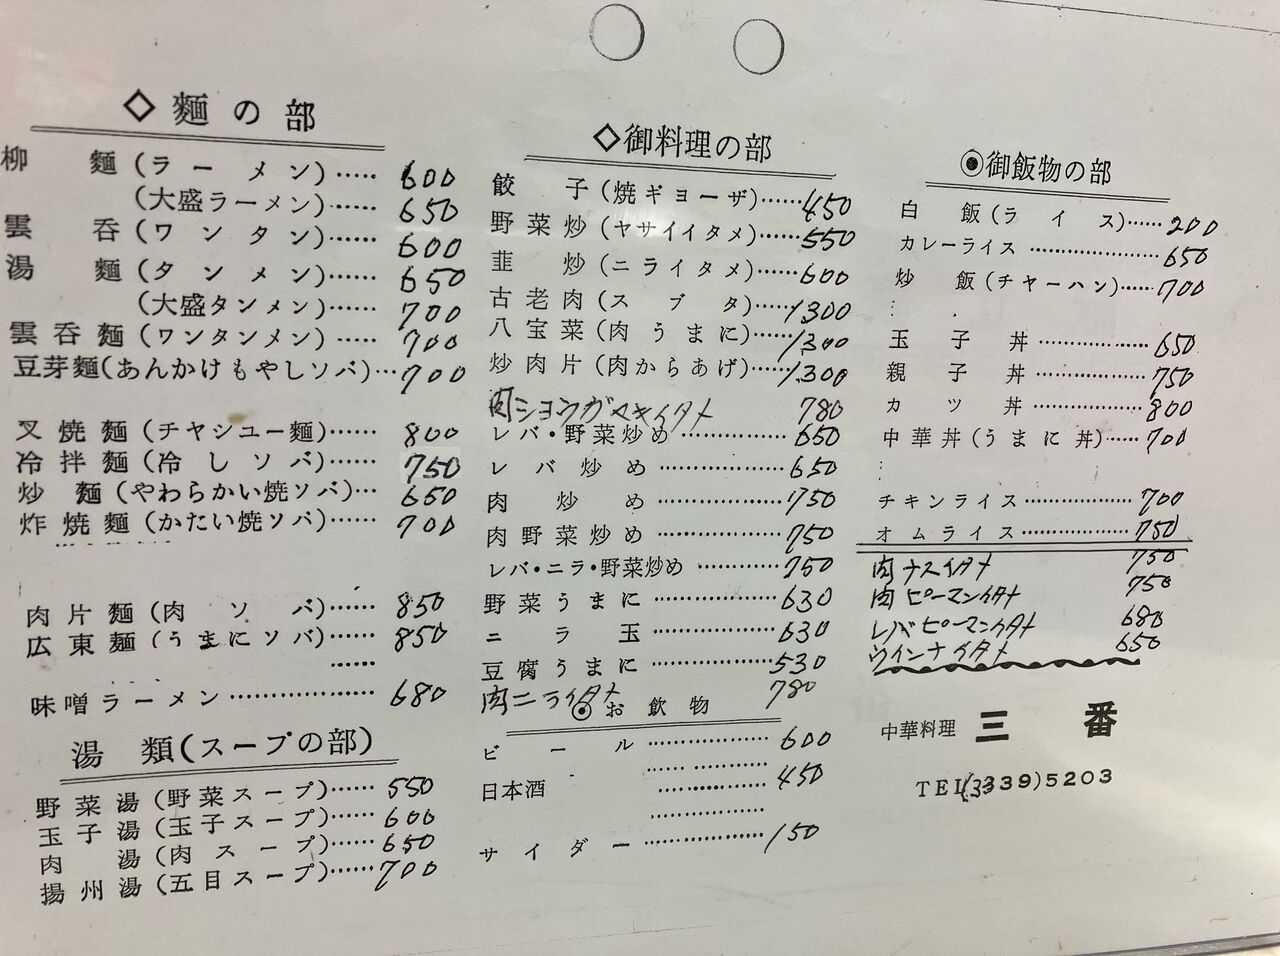 ◇ 麺の部
柳麺(ラーメン)…… 600
(大盛ラーメン)…… 650
雲呑(ワンタン)…… 600
湯麺(タンメン)…… 650
(大盛タンメン)…… 700
雲呑麺(ワンタンメン)…… 700
豆芽麺(あんかけもやしソバ)… 700
叉焼麺(チヤシユー麺)…… 800
冷拌麺(冷しソバ)…… 750
炒麺(やわらかい焼ソバ)… 650
炸焼麺(かたい焼ソバ)…… 700
肉片麺(肉ソバ)…… 850
広東麺(うまにソバ)…… 850
味噌ラーメン…… 680
湯類(スープの部)
野菜湯(野菜スープ)…… 550
玉子湯(玉子スープ)…… 600
肉湯(肉スープ)…… 650
揚州湯(五目スープ)…… 700
◇御料理の部
餃子(焼ギヨーザ)…… 450
野菜炒(ヤサイイタメ)…… 550
韮炒(ニライタメ)…… 600
古老肉(スブタ)…… 1300
八宝菜(肉うまに)…… 1300
炒肉片(肉からあげ)…… 1300
肉ションガヤキイタメ 780
レバ・野菜炒め…… 650
レバ炒め…… 650
肉炒め…… 750
肉野菜炒め…… 750
レバ・ニラ・野菜炒め…… 750
野菜うまに…… 630
ニラ玉…… 630
豆腐うまに…… 530
肉ニライタメ 780
◉お飲物
ビール…… 600
日本酒…… 450
サイダー…… 150
◉御飯物の部
白飯(ライス)…… 200
カレーライス…… 650
炒飯(チャーハン)…… 700
玉子丼…… 650
親子丼…… 750
カツ丼…… 800
中華丼(うまに丼)…… 700
チキンライス…… 700
オムライス…… 750
肉ナスイタメ 750
肉ピーマンイタメ 750
レバピーマンイタメ 680
ウインナイタメ 650
中華料理 三番
TEL(3339)5203